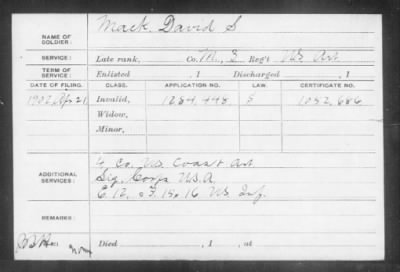 NAME OF SOLDIER: Mack, David S
SERVICE: Late rank, Co. M, 3 Reg't US Art
TERM OF SERVICE: Enlisted , 1 Discharged , 1
DATE OF FILING. CLASS. APPLICATION NO. LAW. CERTIFICATE NO.
1902 Apr. 21 Invalid, 1284,448 1052,686
Widow,
Minor,
ADDITIONAL SERVICES: 4 Co. US Coast Art
Sig. Corps U.S.A.
E. 12, 15, 16 US Inf.
REMARKS:
Died , 1 , at